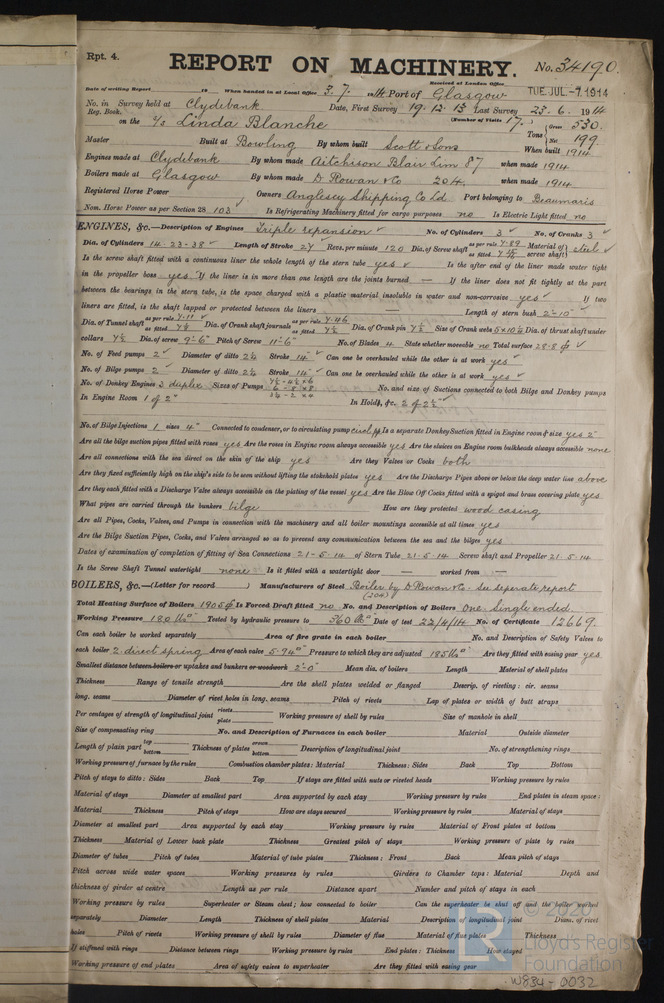 Rpt. 4.
REPORT ON MACHINERY. No. 34190.
Received at London Office TUE. JUL -7 1914
Date of writing Report 19 When handed in at Local Office 3. 7. 1914 Port of Glasgow
No. in Survey held at Clydebank Date, First Survey 19. 12. 13 Last Survey 23. 6. 1914
Reg. Book. (Number of Visits 17.)
on the S/S Linda Blanche Tons { Gross 530.
Net 199.
Master Built at Bowling By whom built Scott & Sons When built 1914
Engines made at Clydebank By whom made Aitchison Blair Lim 87 when made 1914
Boilers made at Glasgow By whom made D. Rowan & Co 204. when made 1914
Registered Horse Power Owners Anglesey Shipping Co Ld Port belonging to Beaumaris
Nom. Horse Power as per Section 28 103 Is Refrigerating Machinery fitted for cargo purposes no Is Electric Light fitted no
ENGINES, &c.—Description of Engines Triple expansion No. of Cylinders 3 No. of Cranks 3
Dia. of Cylinders 14-23-38 Length of Stroke 27 Revs. per minute 120 Dia. of Screw shaft as per rule 7.89 as fitted Material of screw shaft steel
Is the screw shaft fitted with a continuous liner the whole length of the stern tube yes Is the after end of the liner made water tight
in the propeller boss yes If the liner is in more than one length are the joints burned — If the liner does not fit tightly at the part
between the bearings in the stern tube, is the space charged with a plastic material insoluble in water and non-corrosive yes If two
liners are fitted, is the shaft lapped or protected between the liners — Length of stern bush 2'-10"
Dia. of Tunnel shaft as per rule 7.11 as fitted Dia. of Crank shaft journals as per rule 7.46 as fitted 7½ Dia. of Crank pin 7½ Size of Crank webs Dia. of thrust shaft under
collars 7½ Dia. of screw 9'-6" Pitch of Screw 11'-6" No. of Blades 4 State whether moveable no Total surface 28.8
No. of Feed pumps 2 Diameter of ditto 2½ Stroke 14" Can one be overhauled while the other is at work yes
No. of Bilge pumps 2 Diameter of ditto 2½ Stroke 14" Can one be overhauled while the other is at work yes
No. of Donkey Engines 3 duplex Sizes of Pumps No. and size of Suctions connected to both Bilge and Donkey pumps
In Engine Room 1 of 2" In Holds, &c. 2 of 2½"
No. of Bilge Injections 1 sizes 4" Connected to condenser, or to circulating pump Is a separate Donkey Suction fitted in Engine room & size yes 2"
Are all the bilge suction pipes fitted with roses yes Are the roses in Engine room always accessible yes Are the sluices on Engine room bulkheads always accessible none
Are all connections with the sea direct on the skin of the ship yes Are they Valves or Cocks both
Are they fixed sufficiently high on the ship's side to be seen without lifting the stokehold plates yes Are the Discharge Pipes above or below the deep water line above
Are they each fitted with a Discharge Valve always accessible on the plating of the vessel yes Are the Blow Off Cocks fitted with a spigot and brass covering plate yes
What pipes are carried through the bunkers bilge How are they protected wood casing
Are all Pipes, Cocks, Valves, and Pumps in connection with the machinery and all boiler mountings accessible at all times yes
Are the Bilge Suction Pipes, Cocks, and Valves arranged so as to prevent any communication between the sea and the bilges yes
Dates of examination of completion of fitting of Sea Connections 21-5-14 of Stern Tube 21.5.14 Screw shaft and Propeller 21.5.14
Is the Screw Shaft Tunnel watertight none Is it fitted with a watertight door — worked from —
BOILERS, &c.—(Letter for record ) Manufacturers of Steel Boiler by D. Rowan & Co. See seperate report
(204)
Total Heating Surface of Boilers 1905 Is Forced Draft fitted no No. and Description of Boilers One Single ended
Working Pressure 180 lbs Tested by hydraulic pressure to 360 lbs Date of test 22/4/14 No. of Certificate 12669
Can each boiler be worked separately Area of fire grate in each boiler No. and Description of Safety Valves to
each boiler 2 direct spring Area of each valve 5.94 Pressure to which they are adjusted 185 lbs Are they fitted with easing gear yes
Smallest distance between boilers or uptakes and bunkers or woodwork 2'-0" Mean dia. of boilers Length Material of shell plates
Thickness Range of tensile strength Are the shell plates welded or flanged Descrip. of riveting: cir. seams
long. seams Diameter of rivet holes in long. seams Pitch of rivets Lap of plates or width of butt straps
Per centages of strength of longitudinal joint rivets plate Working pressure of shell by rules Size of manhole in shell
Size of compensating ring No. and Description of Furnaces in each boiler Material Outside diameter
Length of plain part top bottom Thickness of plates crown bottom Description of longitudinal joint No. of strengthening rings
Working pressure of furnace by the rules Combustion chamber plates: Material Thickness: Sides Back Top Bottom
Pitch of stays to ditto: Sides Back Top If stays are fitted with nuts or riveted heads Working pressure by rules
Material of stays Diameter at smallest part Area supported by each stay Working pressure by rules End plates in steam space:
Material Thickness Pitch of stays How are stays secured Working pressure by rules Material of stays
Diameter at smallest part Area supported by each stay Working pressure by rules Material of Front plates at bottom
Thickness Material of Lower back plate Thickness Greatest pitch of stays Working pressure of plate by rules
Diameter of tubes Pitch of tubes Material of tube plates Thickness: Front Back Mean pitch of stays
Pitch across wide water spaces Working pressures by rules Girders to Chamber tops: Material Depth and
thickness of girder at centre Length as per rule Distance apart Number and pitch of stays in each
Working pressure by rules Superheater or Steam chest; how connected to boiler Can the superheater be shut off and the boiler worked
separately Diameter Length Thickness of shell plates Material Description of longitudinal joint Diam. of rivet
holes Pitch of rivets Working pressure of shell by rules Diameter of flue Material of flue plates Thickness
If stiffened with rings Distance between rings Working pressure by rules End plates: Thickness How stayed
Working pressure of end plates Area of safety valves to superheater Are they fitted with easing gear
© 2020
Lloyd's Register
Foundation
W834-0032